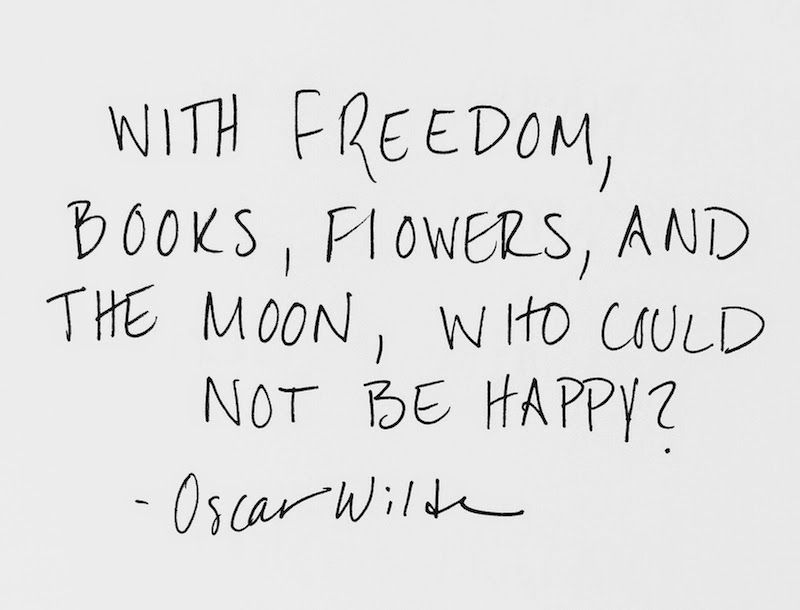 WITH FREEDOM,
BOOKS, FLOWERS, AND
THE MOON, WHO COULD
NOT BE HAPPY?
- Oscar Wilde